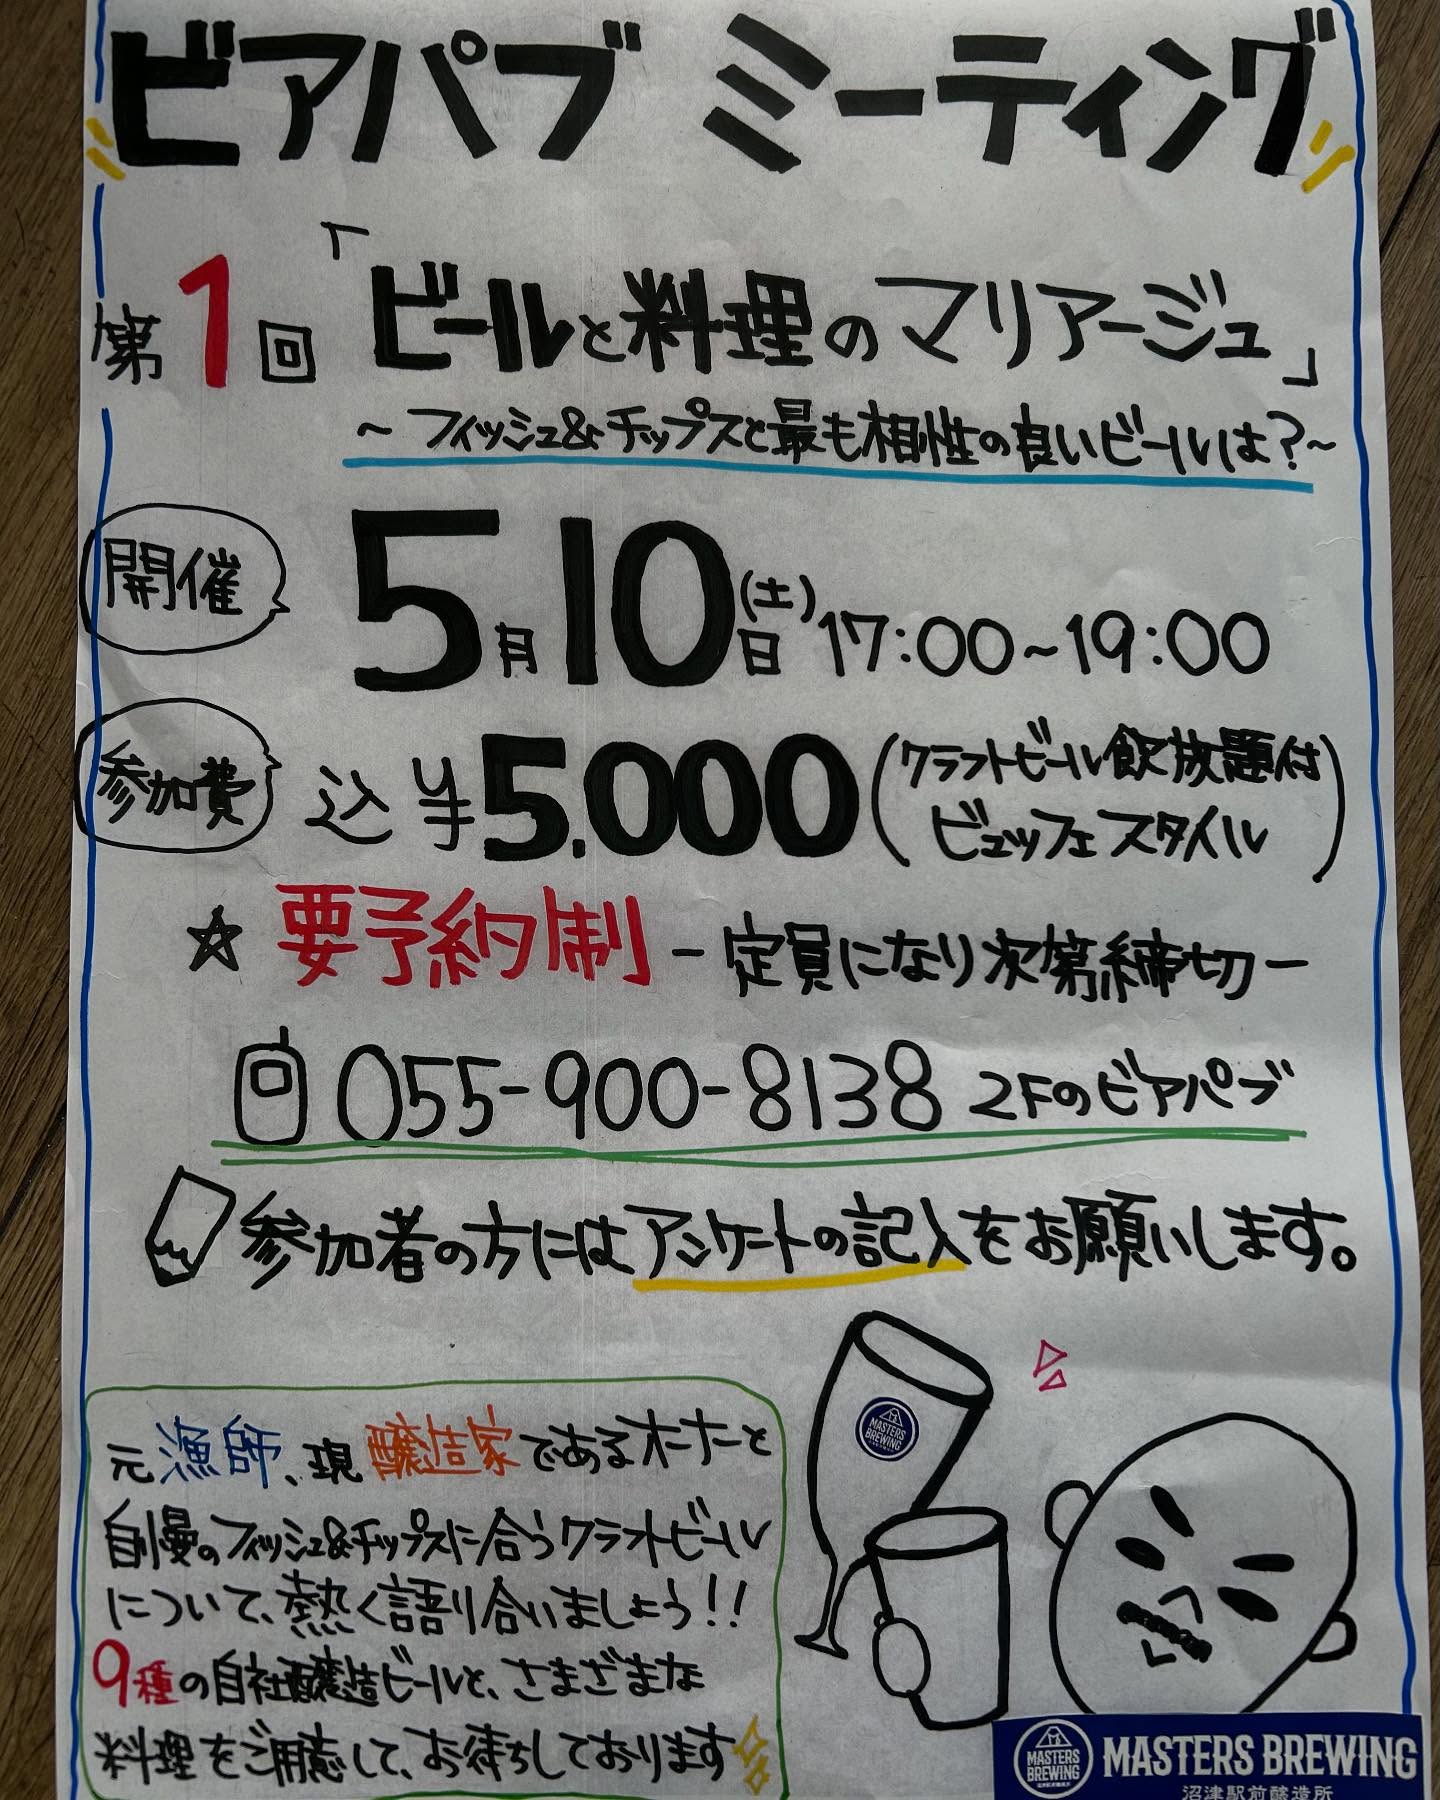 ビアパブ ミーティング
第1回「ビールと料理のマリアージュ」
～フィッシュ&チップスと最も相性の良いビールは?～
開催 5月10日(土) 17:00~19:00
参加費 込¥5.000(クラフトビール飲放題付
ビュッフェスタイル)
☆要予約制-定員になり次第締切-
055-900-8138 2Fのビアパブ
参加者の方にはアンケートの記入をお願いします。
元漁師、現醸造家であるオーナーと
自慢のフィッシュ&チップスに合うクラフトビール
について、熱く語り合いましょう!!
9種の自社醸造ビールと、さまざまな
料理をご用意して、お待ちしております
MASTERS
BREWING
MASTERS
BREWING
MASTERS BREWING
沼津駅前醸造所